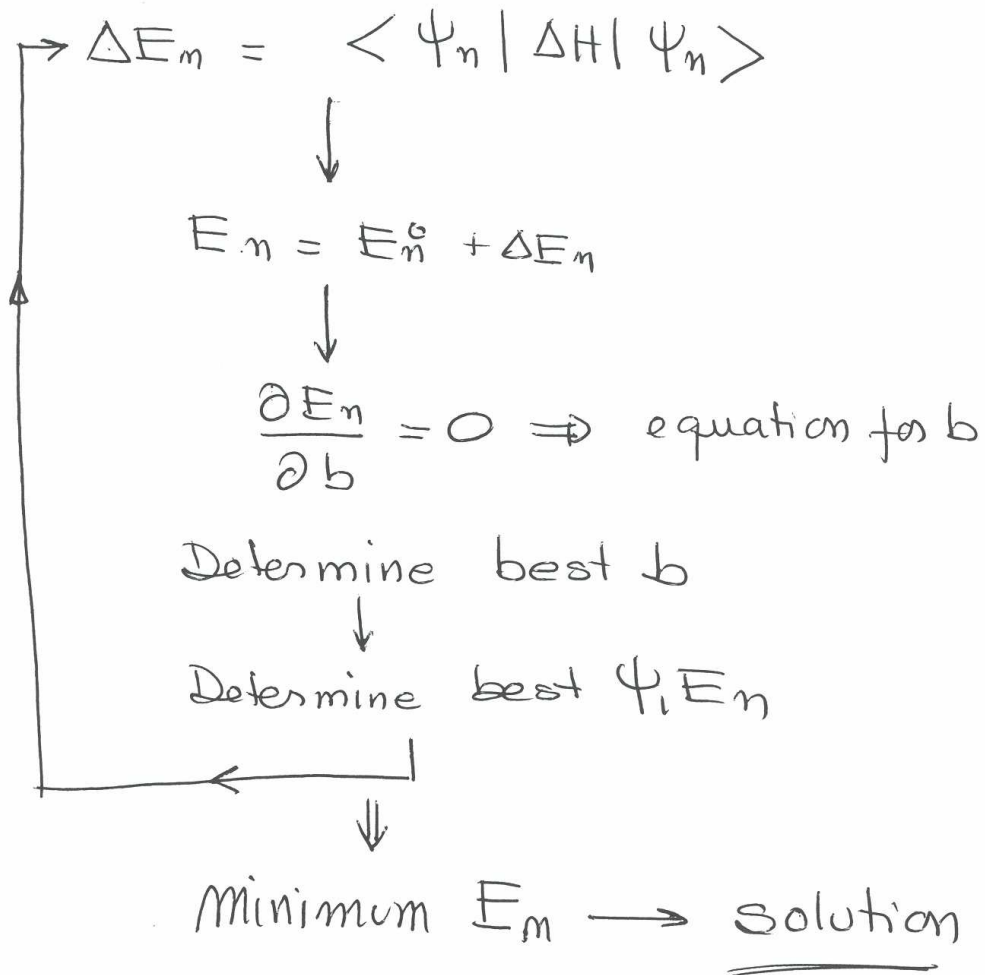 → ΔEₙ = < Ψₙ | ΔH | Ψₙ >
↓
Eₙ = Eₙ° + ΔEₙ
↓
∂Eₙ/∂b = 0 ⇒ equation for b
Determine best b
↓
Determine best Ψ, Eₙ
⇓
Minimum Eₙ → solution